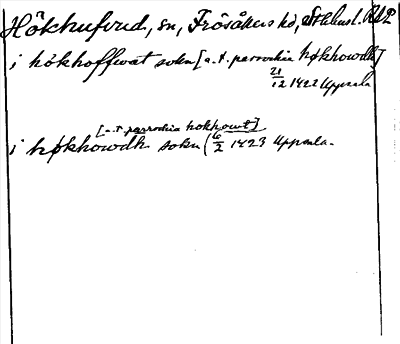 Hökhufvud, sn, Frösåkers hd, Sthlms l. ALP
i hökhoffwat sokn [a.t. parrochia høkhowdh]
21/12 1422 Uppsala
[a.t. parrochia hokhowt]
i høkhowdh sokn ( 6/2 1423 Uppsala.